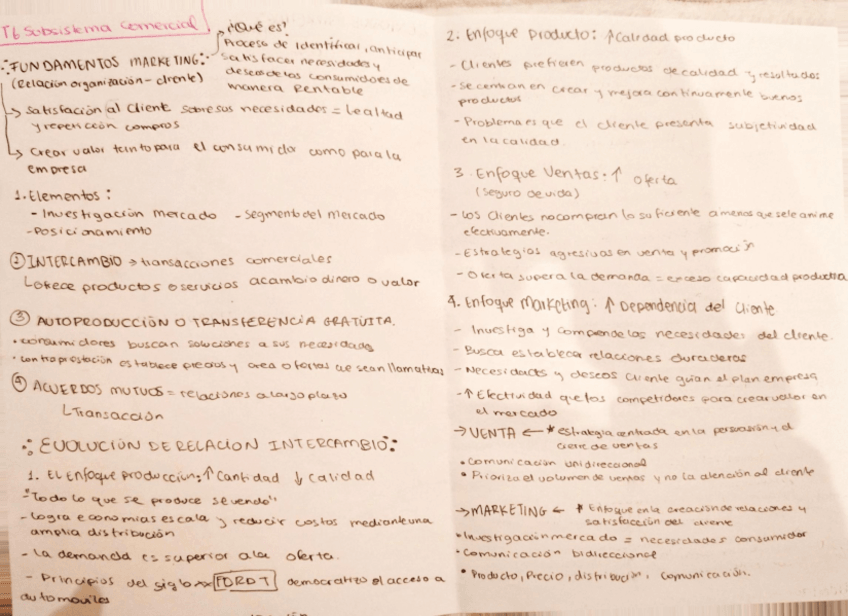 T6 Subsistema Comercial
¿Qué es?
Proceso de Identificar, anticipar
satisfacer necesidades y
deseos de los consumidores de
manera Rentable
FUNDAMENTOS MARKETING:
(Relación organización - cliente)
↳ Satisfacción al Cliente sobre sus necesidades = Lealtad
y repetición compras
↳ Crear valor tanto para el consumidor como para la
empresa
1. Elementos:
- Investigación mercado - Segmento del mercado
- Posicionamiento
② INTERCAMBIO → transacciones comerciales
↳ Ofrece productos o servicios a cambio dinero o valor
③ AUTOPRODUCCIÓN O TRANSFERENCIA GRATUITA.
• Consumidores buscan soluciones a sus necesidades
• Contraprestación establece precios y crea ofertas que sean llamativas
④ ACUERDOS MUTUOS = relaciones a largo plazo
↳ Transacción
EVOLUCIÓN DE RELACION INTERCAMBIO:
1. EL Enfoque producción: ↑ Cantidad ↓ Calidad
- "Todo lo que se produce se vende"
- Logra economías escala y reducir costos mediante una
amplia distribución
- La demanda es superior a la oferta.
- Principios del siglo XX FORD T democratizo el acceso a
automoviles
2. Enfoque Producto: ↑ Calidad producto
- Clientes prefieren productos de calidad y resultados
- Se centran en crear y mejora continuamente buenos
productos
- Problema es que el cliente presenta subjetividad
en la calidad.
3. Enfoque Ventas: ↑ Oferta
(Seguro de vida)
- Los Clientes no compran lo suficiente a menos que se le anime
efectivamente.
- Estrategias agresivas en venta y promoción
- Oferta supera la demanda = exceso capacidad productiva
4. Enfoque Marketing: ↑ Dependencia del Cliente
- Investiga y comprende las necesidades del cliente.
- Busca establecer relaciones duraderas
- Necesidades y deseos cliente guían el plan empresa
- ↑ Efectividad que los competidores para crear valor en
el mercado
→ VENTA ← * Estrategia centrada en la persuasión y el
cierre de ventas
• Comunicación unidireccional
• Prioriza el volumen de ventas y no la atención al cliente
→ MARKETING ← * Enfoque en la creación de relaciones y
satisfacción del cliente
• Investigación mercado = necesidades consumidor
• Comunicación bidireccional
• Producto, Precio, distribución, Comunicación.